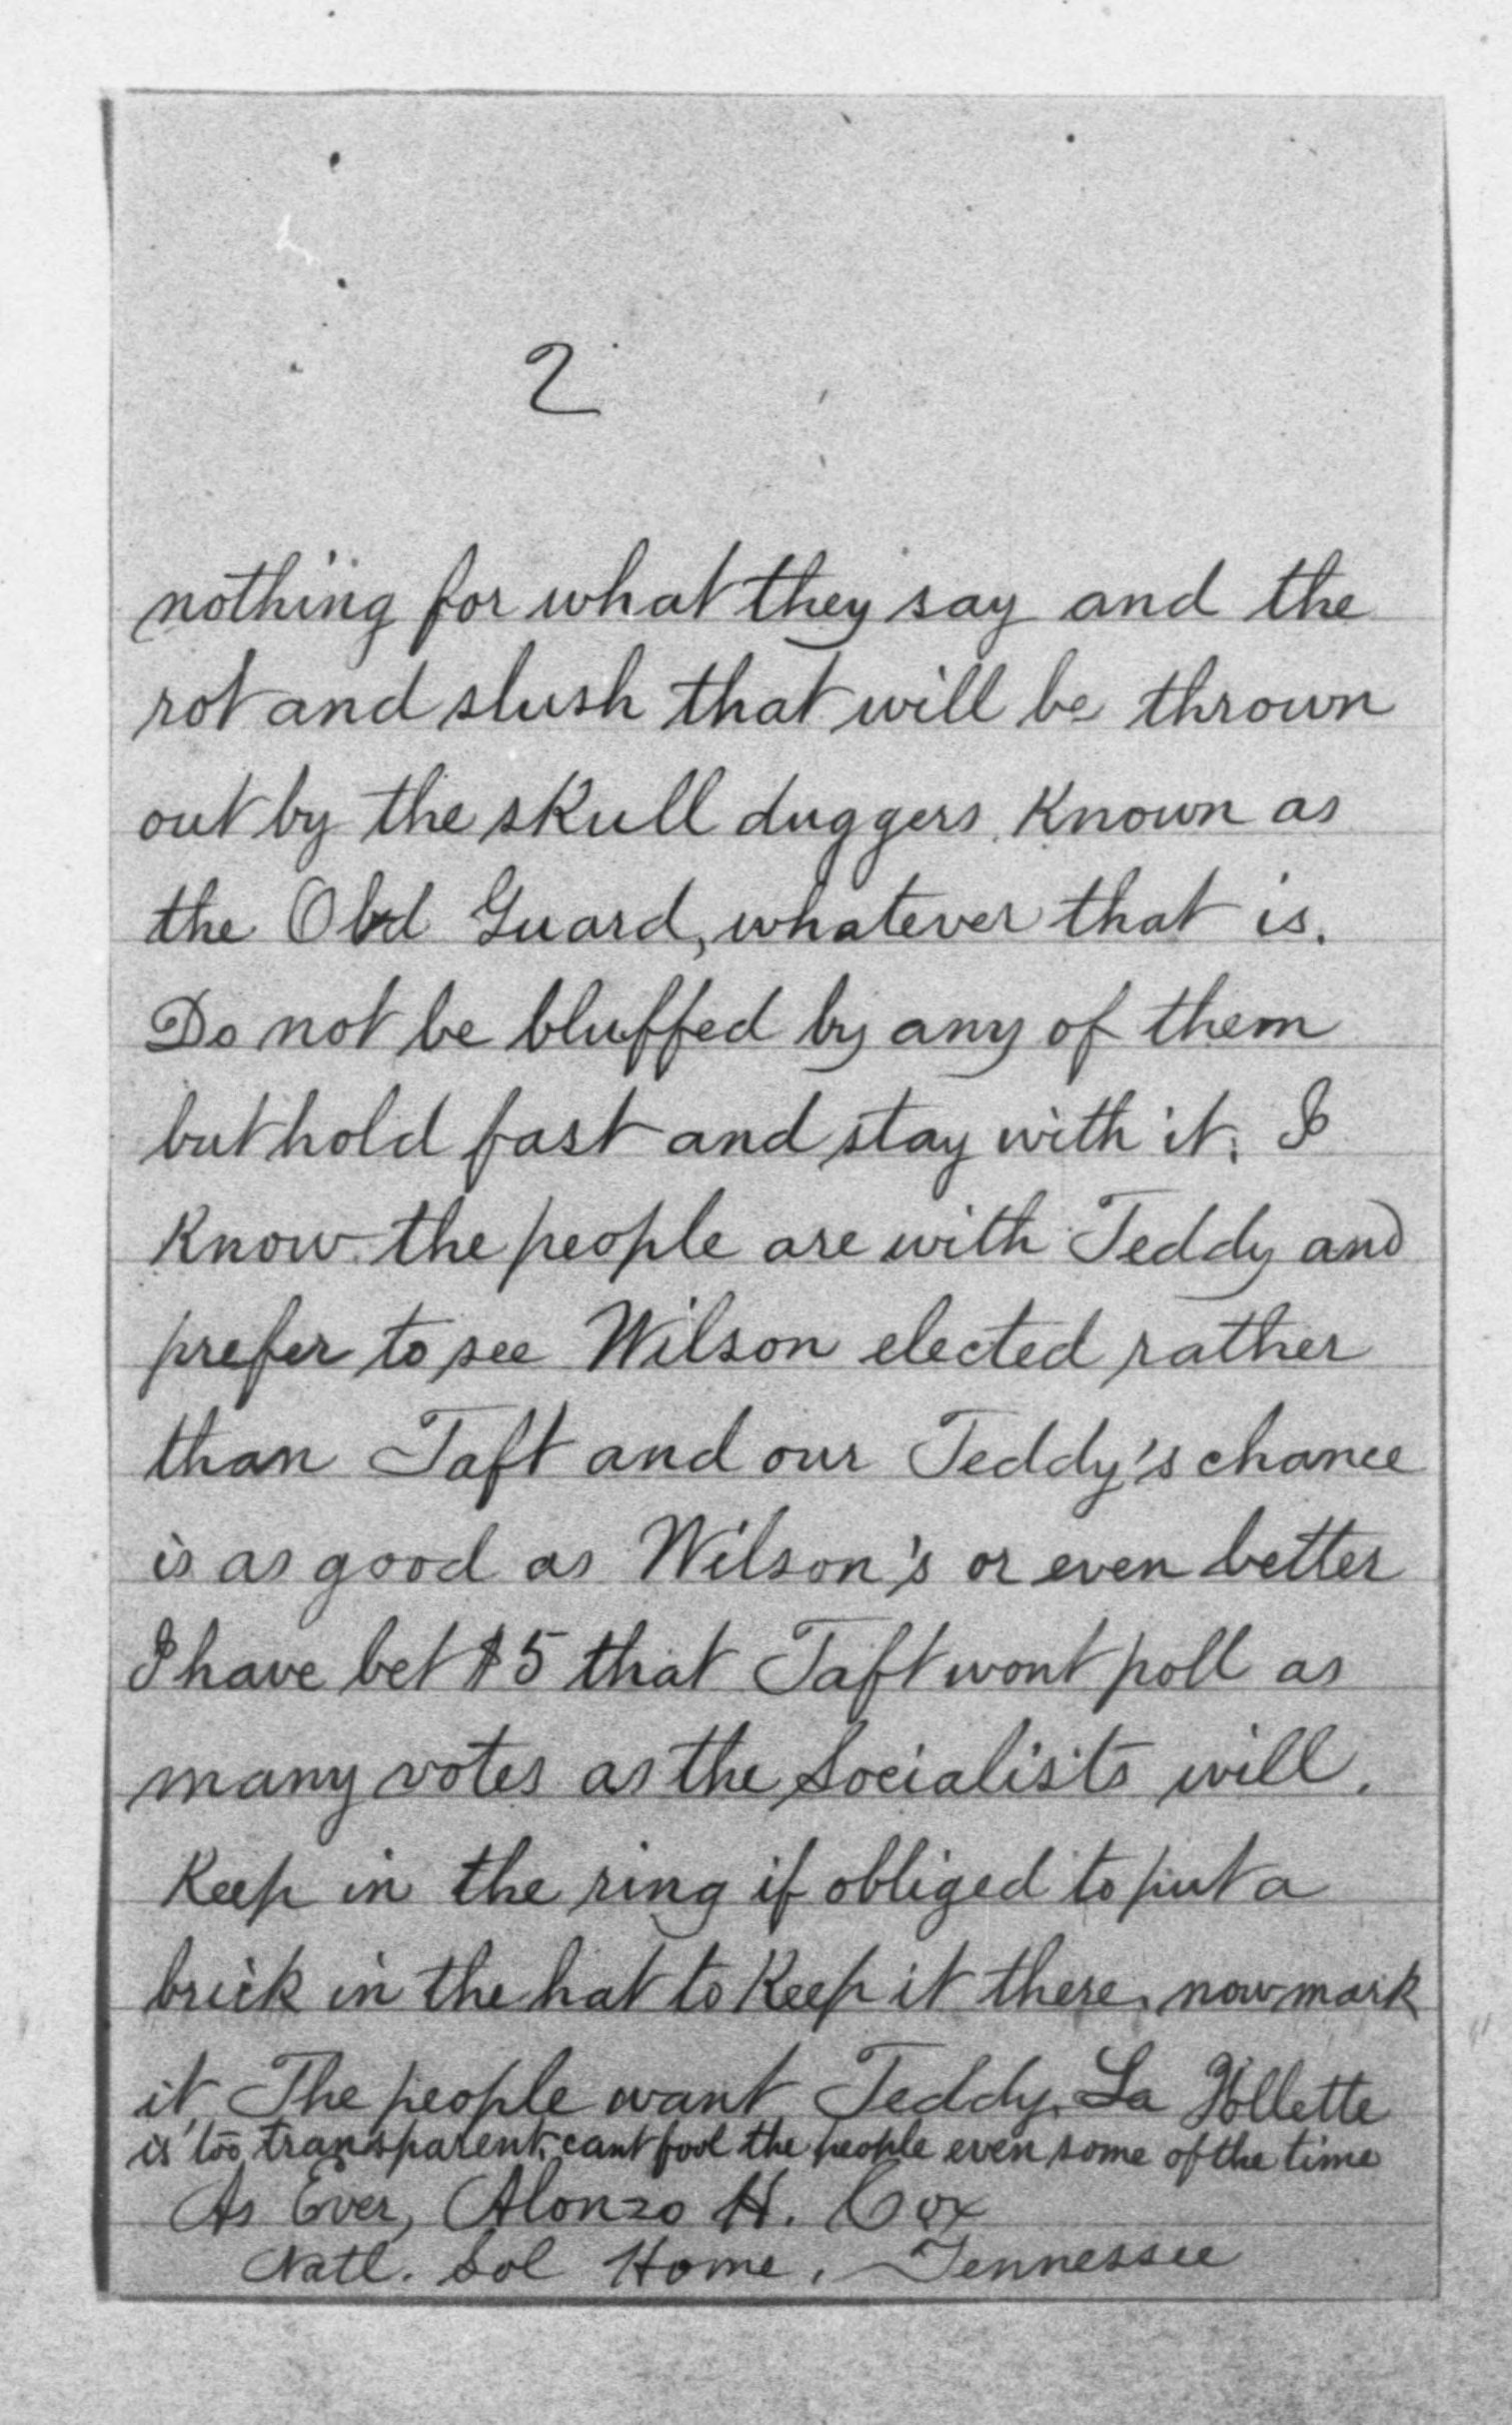 2
nothing for what they say and the
rot and slush that will be thrown
out by the skull duggers known as
the Old Guard, whatever that is.
Do not be bluffed by any of them
but hold fast and stay with it. I
know the people are with Teddy and
prefer to see Wilson elected rather
than Taft and our Teddy's chance
is as good as Wilson's or even better
I have bet $5 that Taft wont poll as
many votes as the Socialists will.
Keep in the ring if obliged to put a
brick in the hat to keep it there, now mark
it, The people want Teddy. La Follette
is too transparent, cant fool the people even some of the time
As Ever, Alonzo H. Cox
Natl. Sol Home, Tennessee